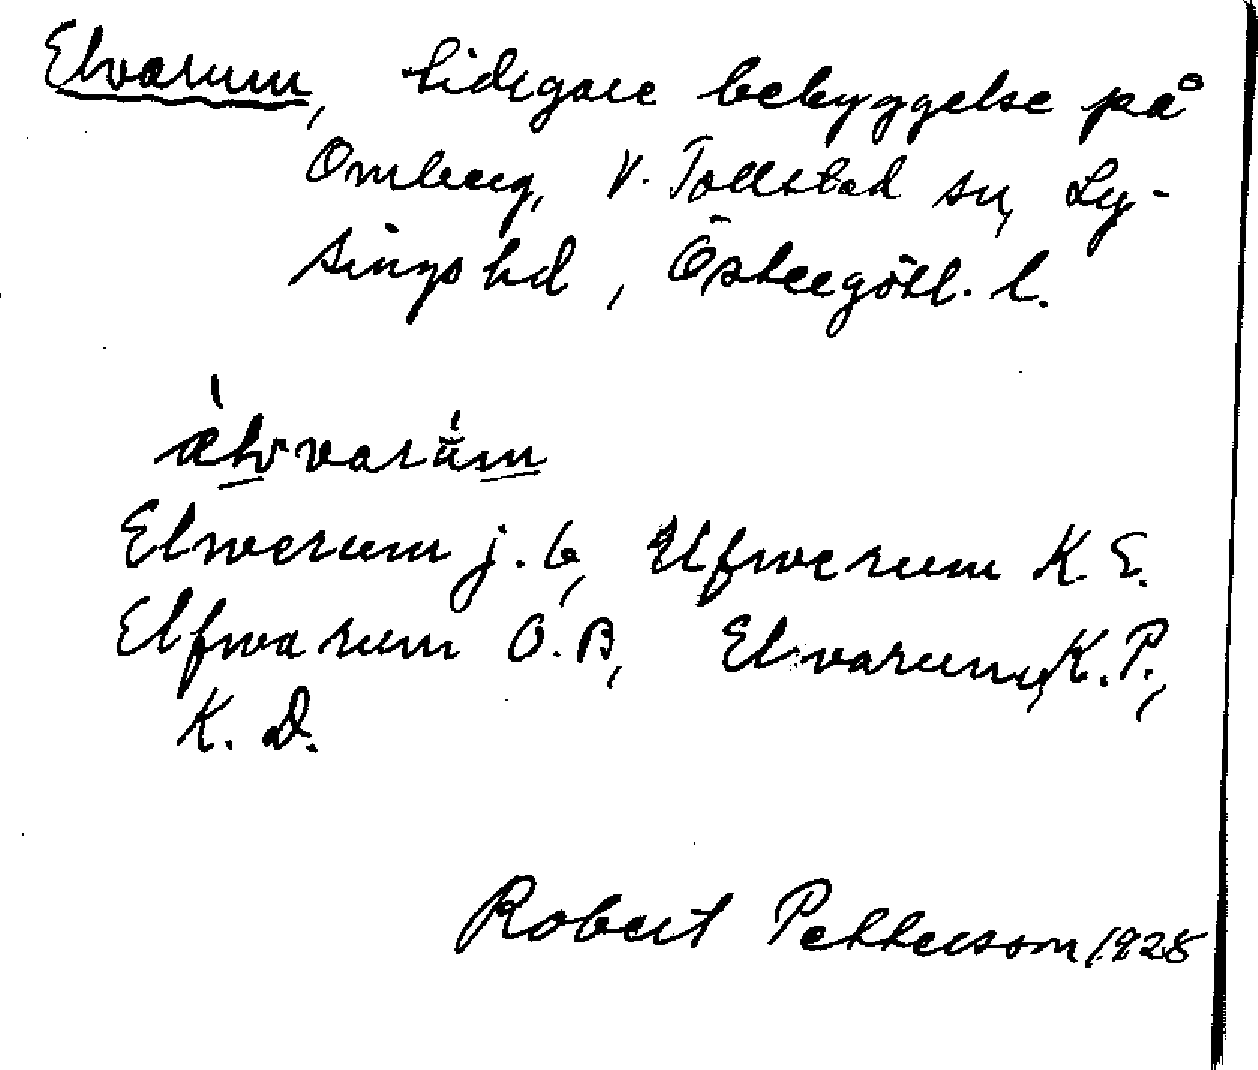 Elvarum, tidigare bebyggelse på
Omberg, V. Tollstad sn, Ly-
sings hd, Östergötl. l.
älvvarùm
Elwerum j. b, Elfwerum K. E.
Elfwarum O. B, Elvarum, K. P.,
K. D.
Robert Pettersson 1928